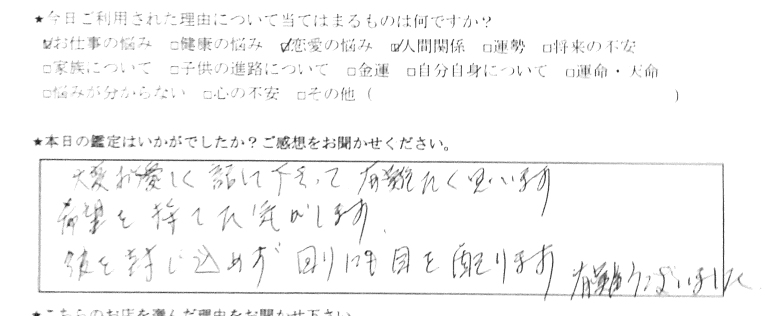 ★今日ご利用された理由について当てはまるものは何ですか？
☑お仕事の悩み □健康の悩み ☑恋愛の悩み ☑人間関係 □運勢 □将来の不安
□家族について □子供の進路について □金運 □自分自身について □運命・天命
□悩みが分からない □心の不安 □その他（ ）
★本日の鑑定はいかがでしたか？ご感想をお聞かせください。
大変お優しく話して下さって有難たく思います
希望を持てた気がします
を封じ込めず回りにも目を配ります
有難うございました
★こちらのお店を選んだ理由をお聞かせ下さい。